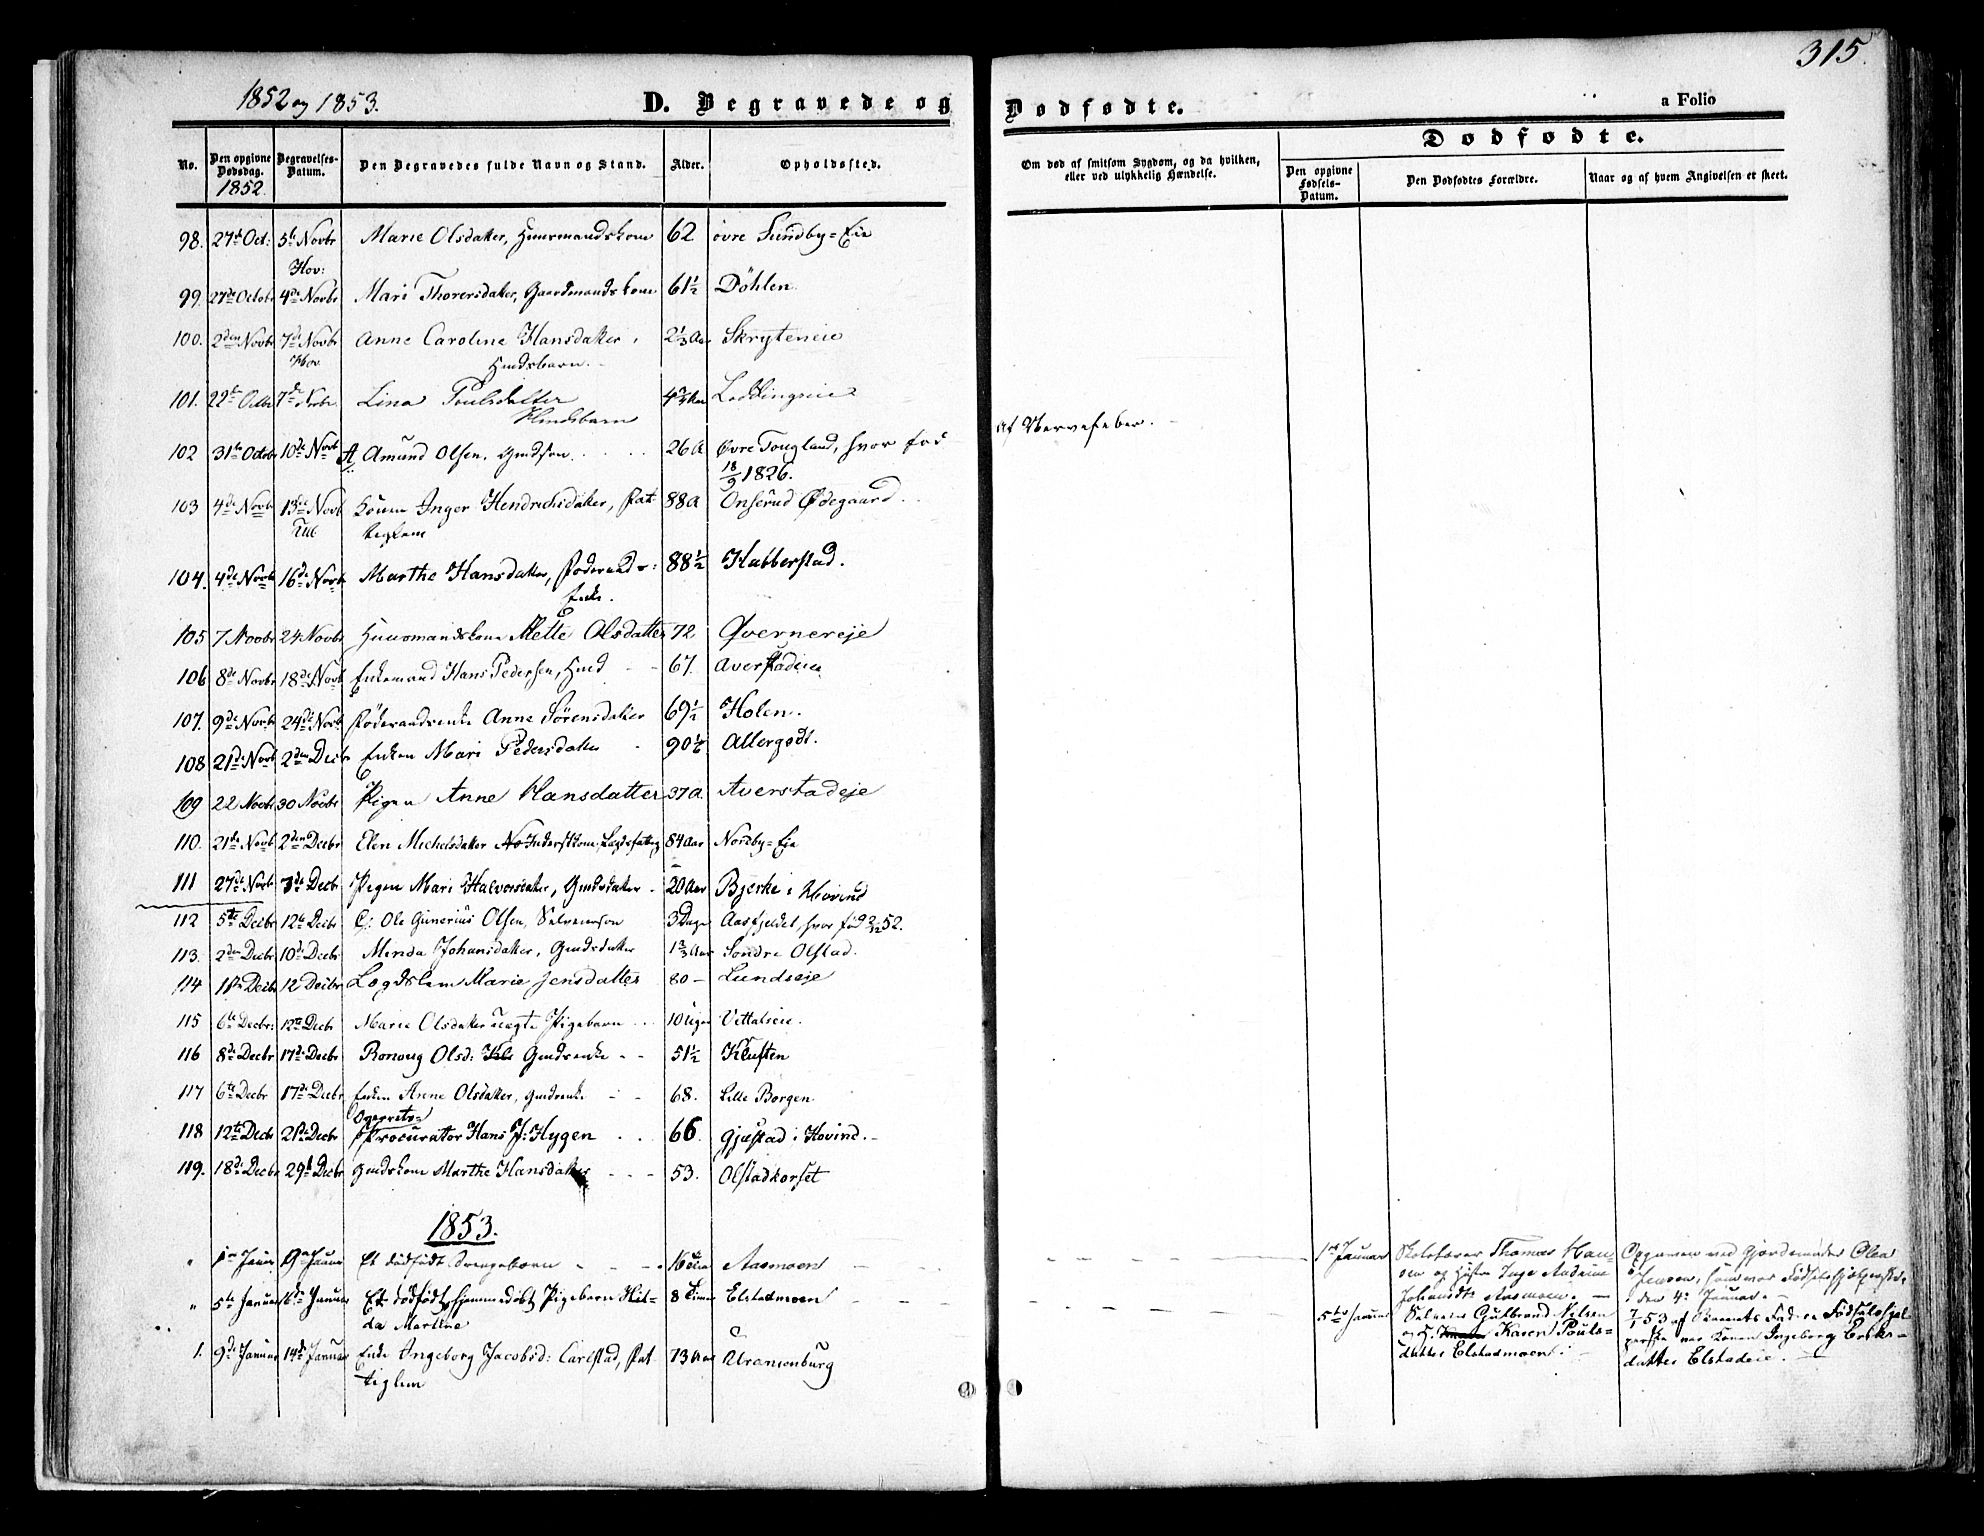 315.
1852 og 1853.
D. Begravede og Dødfødte.
a Folio
No.
Den opgivne Dødsdag.
1852.
Begravelses-Datum.
Den Begravedes fulde Navn og Stand.
Alder.
Opholdssted.
Om død af smitsom Sygdom, og da hvilken, eller ved ulykkelig Hændelse.
Dødfødte.
Den opgivne Fødsels-Datum.
Den Dødfødtes Forældre.
Naar og af hvem Angivelsen er skeet.
98. 27de Oct: 5te Novbr Marie Olsdatter, Huusmandskone 62 øvre Sundby=Eie
Hov:
99. 27de Octobr 4de Novbr Mari Thorersdatter, Gaardmandskone 61½ Döhlen
100. 2den Novbr 7de Novbr Anne Caroline Hansdatter, 2⅓ Aar Skryteneie
Hov Hmdsbarn.
101. 22de Octbr 7de Novbr Lina Poulsdatter 4¾ Aar
Hmdsbarn
102 31te Octobr 10de Novb Amund Olsen, Gmdsøn 26 A Øvre Fougland, hvor fød af Nervefeber.
18/9 1826.
103 4de Novb 13de Novb Konen Inger Hendrichsdatter, Fat- 88 A Onserud Ødegaard.
tiglem
104. 4de Novb 16de Novb Marthe Hansdatter, Føderaads: 88½ Habberstad.
Enke.
105 7 Novbr 24 Novbr Huusmandskone Mette Olsdatter 72 Qvernereje
106 8de Novbr 18de Novb Enkemand Hans Pedersen, Hmd 67. Averstadeie
107. 9de Novb. 24de Novb. Føderaadsenke Anne Sörensdatter 69½ Holen.
108 21de Novb 2den Decbr Enken Mari Pedersdatter 90½ Allergodt.
109 22 Novbr 30 Novbr Pigen Anne Hansdatter 37 A. Averstadeje
110. 21de Novb 2den Decbr Elen Michelsdatter Inderstkone, Lægdsfattig 84 Aar Nordby=Eje
111 27de Novb 7de Decb Pigen Mari Halvorsdatter, Gmdsdatter 20 Aar Bjerke i Hovind
112 5te Decbr 12te Decbr Ole Gunerius Olsen, Selveiersøn 3 Dage Aasfjeldet, hvor fød 2/12 52.
113. 2den Decbr 10de Decbr Minda Johansdatter, Gmdsdatter 1¾ Aar Söndre Olstad.
114 11te Decbr 12 Decbr Lægdslem Marie Jensdatter 80 – Lundseje
115 6te Decbr: 12te Decb Marie Olsdatter uægte Pigebarn 10 Uger Vittalseie.
116 8de Decbr 17de Decbr Ronoug Olsd: Gmdsenke 51½ Kluften
117 6te Decbr 17de Decbr Enken Anne Olsdatter, Gmdsenke 68. Lille Borgen
Overrets-
118 12te Decb 21de Decbr Procurator Hans J: Hygen 66. Gjestad i Hovind.
119. 18de Decbr 29de Decbr Gmdskone Marthe Hansdatter 53. Olstadkorset
1853.
" 1ste Januar 9de Januar Et dødfødt Drengebarn Aasmoen
1ste Januar Skolelærer Thomas Han-
sen og Hustru Inge Andrine
Johansdtr Aasmoen.
Opgaven ved Gjordemoder Olea
Jensen, som var Fødselshjelperske,
den 4de Januar.
" 5te Januar 16de Januar Et dødfødt hjemmedøbt Pigebarn Hil- 8 Timer Elstadmoen
da Martine
5te Januar Selveier Gulbrand Nilsen
og H. Karen Pouls-
datter Elstadmoen.
7/1 53 af Barnets Fader. Fødselshjel-
perske var Konen Ingeborg Eriks-
datter Elstadeie.
1. 9de Januar 14de Januar Enke Ingeborg Jacobsd: Carlstad, Fat- 73 Aar Uranienburg
tiglem